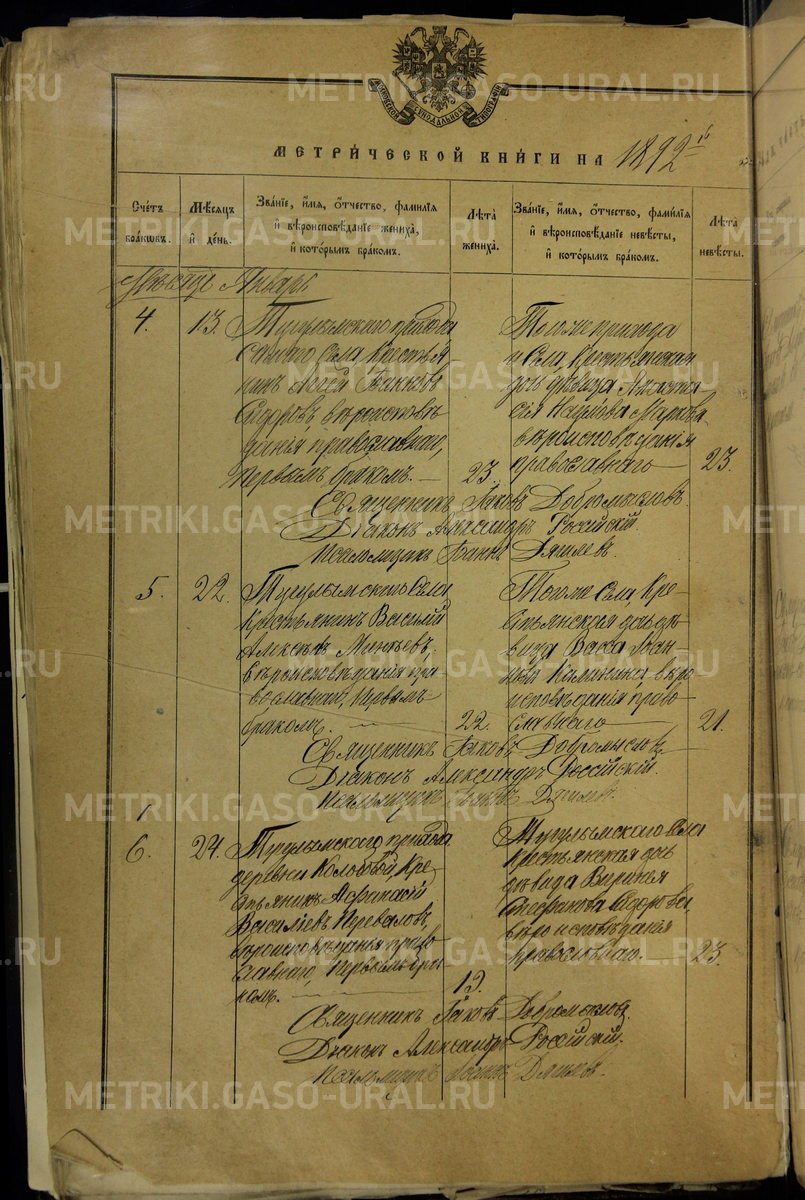 МЕТРИ́ЧЕСКОЙ КНИ́ГИ НА 1892 й
Счетъ браковъ.
Мѣсяцъ и де́нь.
Зва́ніе, и́мя, о́тчество, фами́лія и вѣроисповѣ́даніе жениха́, и кото́рымъ бра́комъ.
Лѣта̀ жениха̀.
Зва́ніе, и́мя, о́тчество, фами́лія и вѣроисповѣ́даніе невѣ́сты, и кото́рымъ бра́комъ.
Лѣта̀ невѣ́сты.
Январь
4.
13.
Тугулымскаго прихода
самаго села, крестья-
нинъ
Ѳедоровъ вѣроисповѣ-
данія православнаго,
первымъ бракомъ.
23.
Того же прихода
и села, крестьянская
дочь девица
Наумова Маркова
вѣроисповѣданія
православнаго
23.
Священникъ Іаковъ Добромысловъ.
Діаконъ Александръ Россійскій.
Псаломщикъ Іоаннъ
5.
22.
Тугулымскаго села
крестьянинъ Василій
вѣроисповѣданія пра-
вославнаго, первымъ
бракомъ.
22.
Того же села, кре-
стьянская дочь дѣ-
вица Васса Іоан-
нова вѣро
исповѣданія право-
славнаго
21.
Священникъ Іаковъ Добромысловъ
Діаконъ Александръ Россійскій.
Псаломщикъ Іоаннъ
6.
24.
Тугулымскаго прихода
деревни Колобовой, кре-
стьянинъ Афанасій
Васильевъ Переваловъ,
вѣроисповѣданія право
славнаго, первымъ бра-
комъ.
19.
Тугулымскаго села
крестьянская дочь
дѣвица Виринея
вѣроисповѣданія
православнаго.
23.
Священникъ Іаковъ Добромысловъ
Діаконъ Александръ Россійскій.
Псаломщикъ Іоаннъ
METRIKI.GASO-URAL.RU